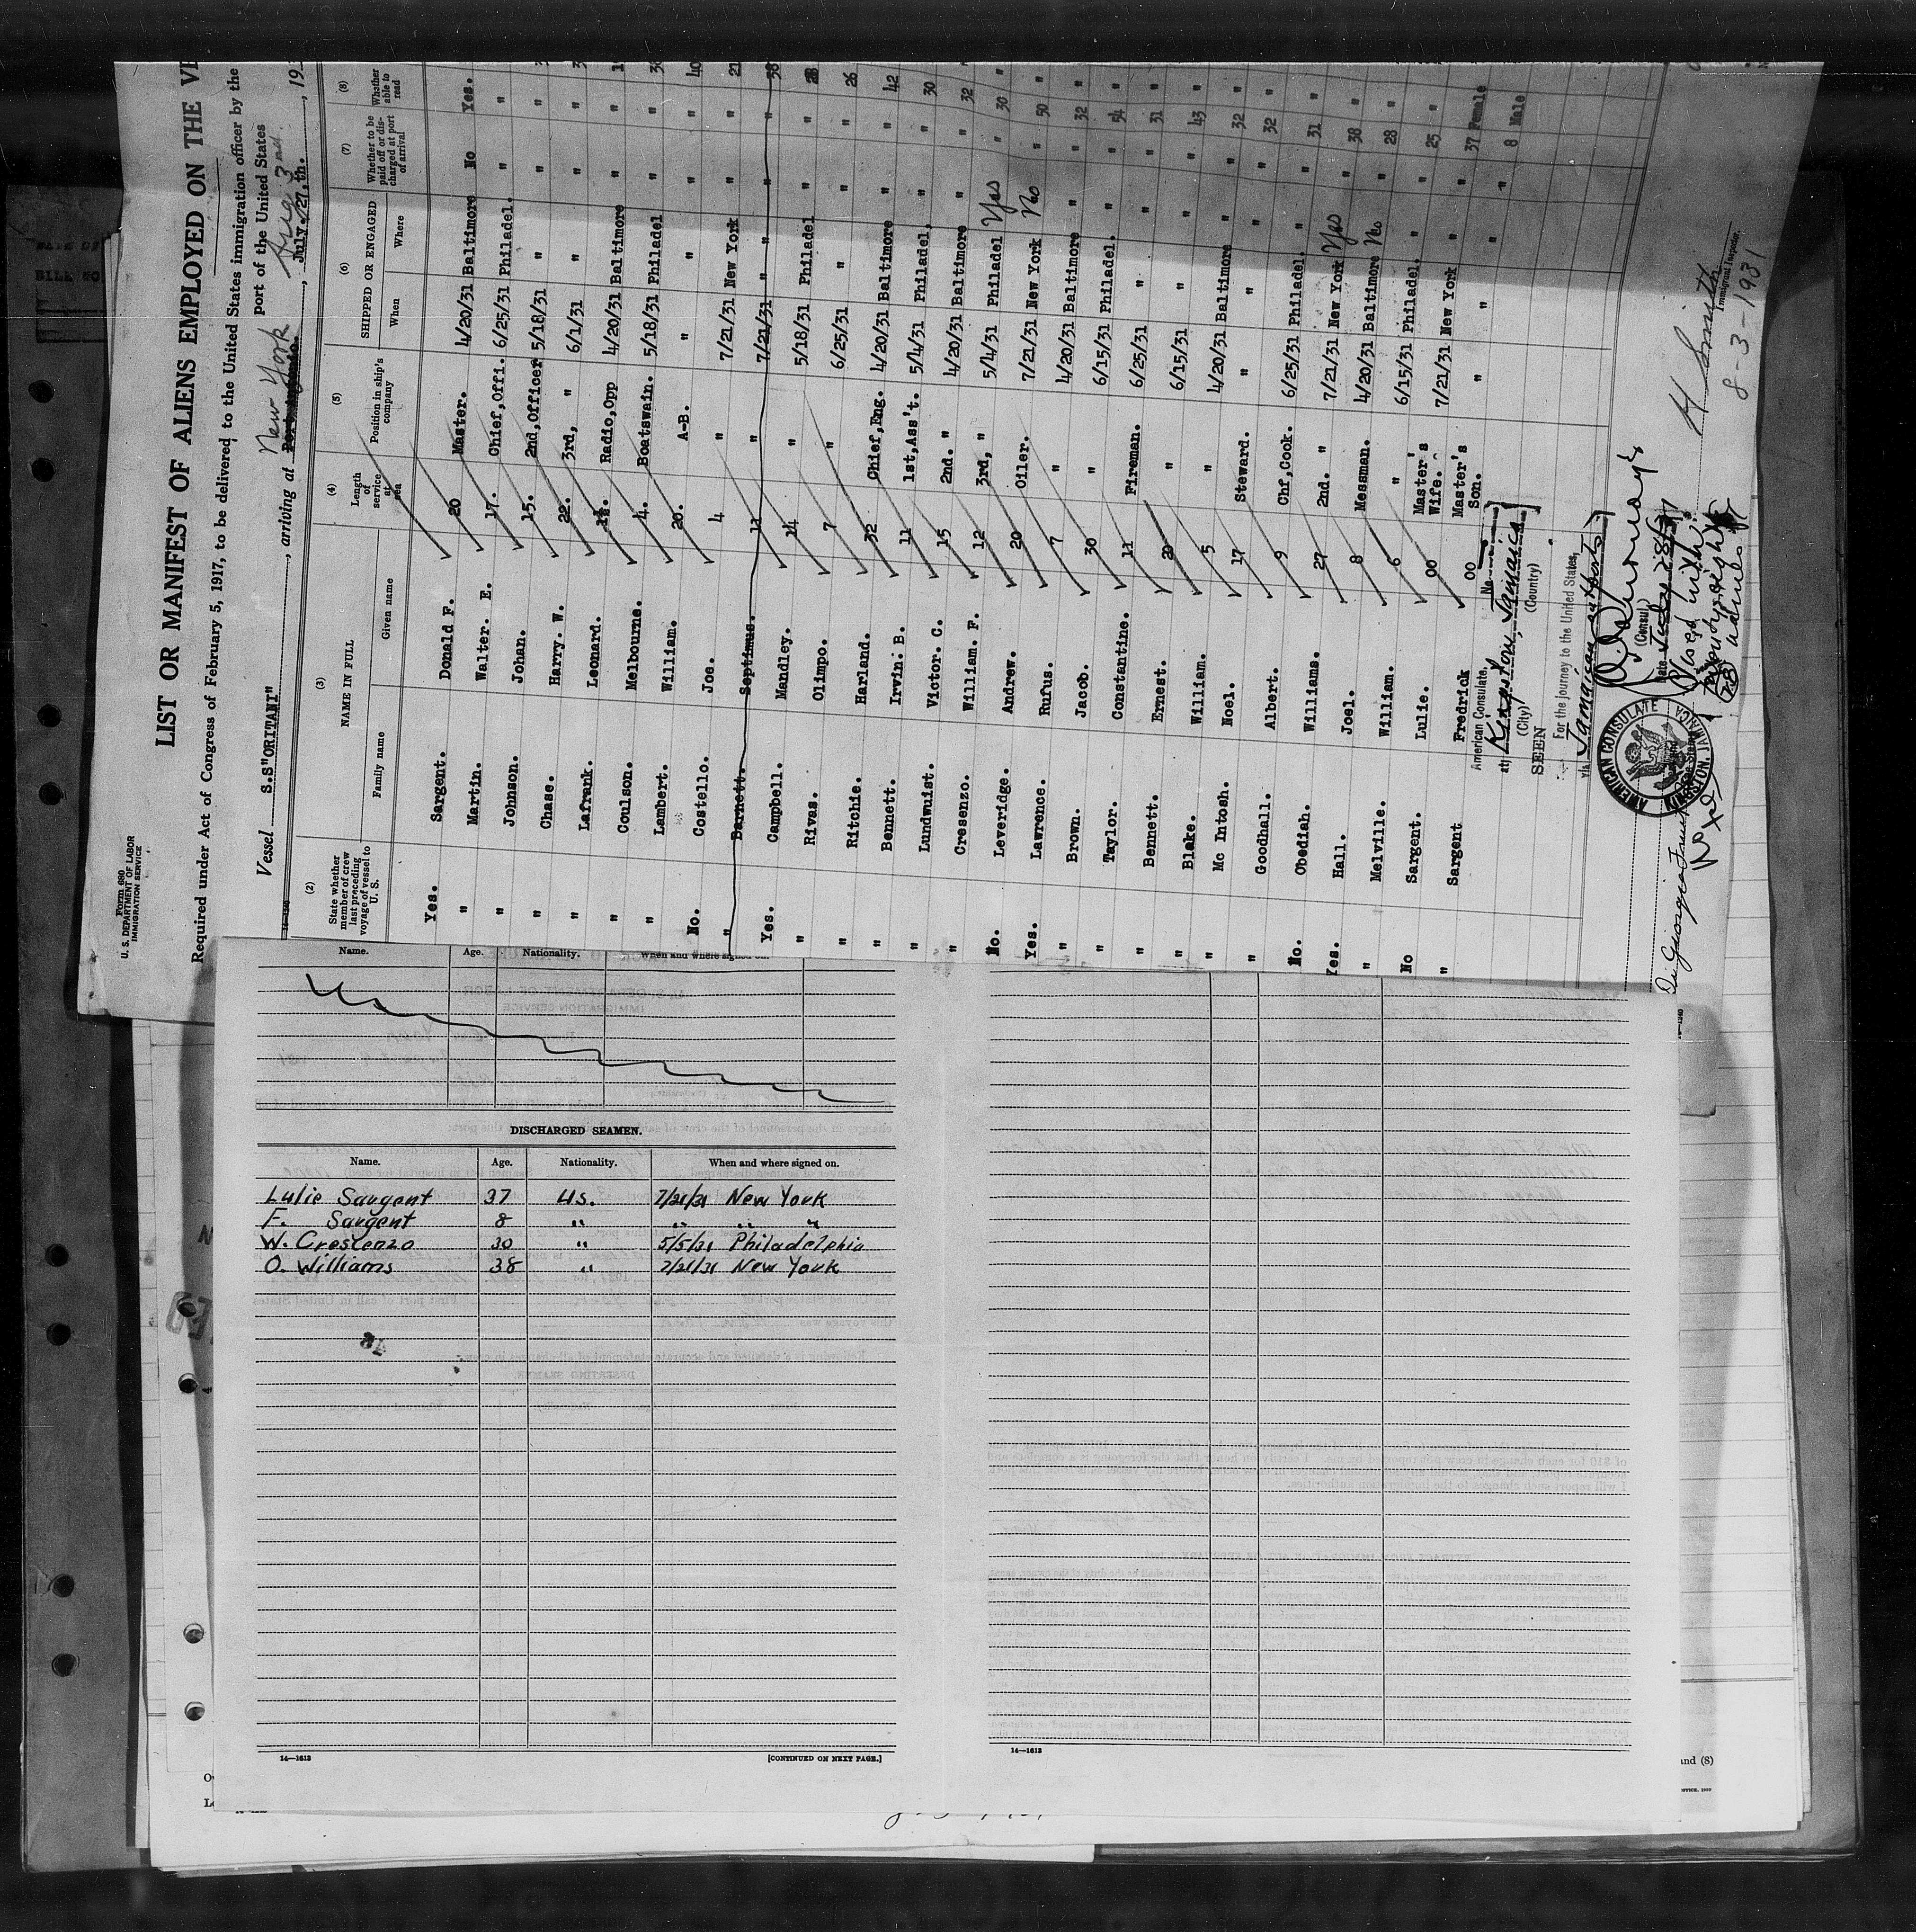 Form 680
U. S. DEPARTMENT OF LABOR
IMMIGRATION SERVICE
LIST OR MANIFEST OF ALIENS EMPLOYED ON THE
Required under Act of Congress of February 5, 1917, to be delivered to the United States immigration officer by the
Vessel S.S"ORITANI", arriving at New York port of the United States
Aug 3rd July/27,th., 19
(2) (3) (4) (5) (6) (7) (8)
State whether member of crew last preceding voyage of vessel to U. S.
NAME IN FULL
Family name Given name
Length of service at sea
Position in ship's company
SHIPPED OR ENGAGED
When Where
Whether to be paid off or discharged at port of arrival
Whether able to read
Yes. Sargent. Donald F. 20 Master. 4/20/31 Baltimore No Yes.
" Martin. Walter. E. 17. Chief,Offi. 6/25/31 Philadel. " "
" Johnson. Johan. 15. 2nd,Officer 5/18/31 " " "
" Chase. Harry. W. 22. 3rd, " 6/1/31 " " "
" Lafrank. Leonard. Radio,Opp 4/20/31 Baltimore " "
" Coulson. Melbourne. 4. Boatswain. 5/18/31 Philadel " "
" Lambert. William. 20. A-B. " " " " 40
No. Costello. Joe. 4 " 7/21/31 New York " " 21
" Barnett. Septimus. 13 " 7/21/31 " " " 38
Yes. Campbell. Mandley. 14 " 5/18/31 Philadel " "
" Rivas. Olimpo. 7 " 6/25/31 " " " 26
" Ritchie. Harland. 32 Chief,Eng. 4/20/31 Baltimore " " 42
" Bennett. Irvin. B. 11 1st,Ass't. 5/4/31 Philadel, " " 30
" Lundwuist. Victor. C. 15 2nd. " 4/20/31 Baltimore " " 32
" Cresenzo. William. F. 12 3rd, " 5/4/31 Philadel Yes " 30 "
No. Leveridge. Andrew. 20 Oiler. 7/21/31 New York No " 50 "
Yes. Lawrence. Rufus. 7 " 4/20/31 Baltimore " " 32 "
" Brown. Jacob. 30 " 6/15/31 Philadel. " " 54 "
" Taylor. Constantine. 11 Fireman. 6/25/31 " " " 31 "
" Bennett. Ernest. 20 " 6/15/31 " " " 43 "
" Blake. William. 5 " 4/20/31 Baltimore " " 32 "
" Mc Intosh. Noel. 17 Steward. " " " " 32 "
" Goodhall. Albert. 9 Chf,Cook. 6/25/31 Philadel. " " 31 "
No. Obediah. Williams. 27 2nd. " 7/21/31 New York Yes " 38 "
Yes. Hall. Joel. 8 Messman. 4/20/31 Baltimore No " 28 "
" Melville. William. 6 " 6/15/31 Philadel. " " 25 "
No Sargent. Lulie. 00 Master's Wife. 7/21/31 New York " " 37 Female
" Sargent Fredrick 00 Master's Son. " " " " 8 Male
American Consulate, No
at Kingston, Jamaica
(City) (Country)
SEEN
For the journey to the United States,
via Jamaican outports
(Consul)
AMERICAN CONSULATE
KINGSTON, JAMAICA
H Smith
Immigrant Inspector.
8-3-1931
Name. Age. Nationality. When and where signed on.
DISCHARGED SEAMEN.
Name. Age. Nationality. When and where signed on.
Lulie Sargent 37 U.S. 7/21/31 New York
F. Sargent 8 " " " "
W. Crescenzo 30 " 5/5/31 Philadelphia
O. Williams 38 " 7/21/31 New York
14—1613
[CONTINUED ON NEXT PAGE.]
14—1613
and (8)